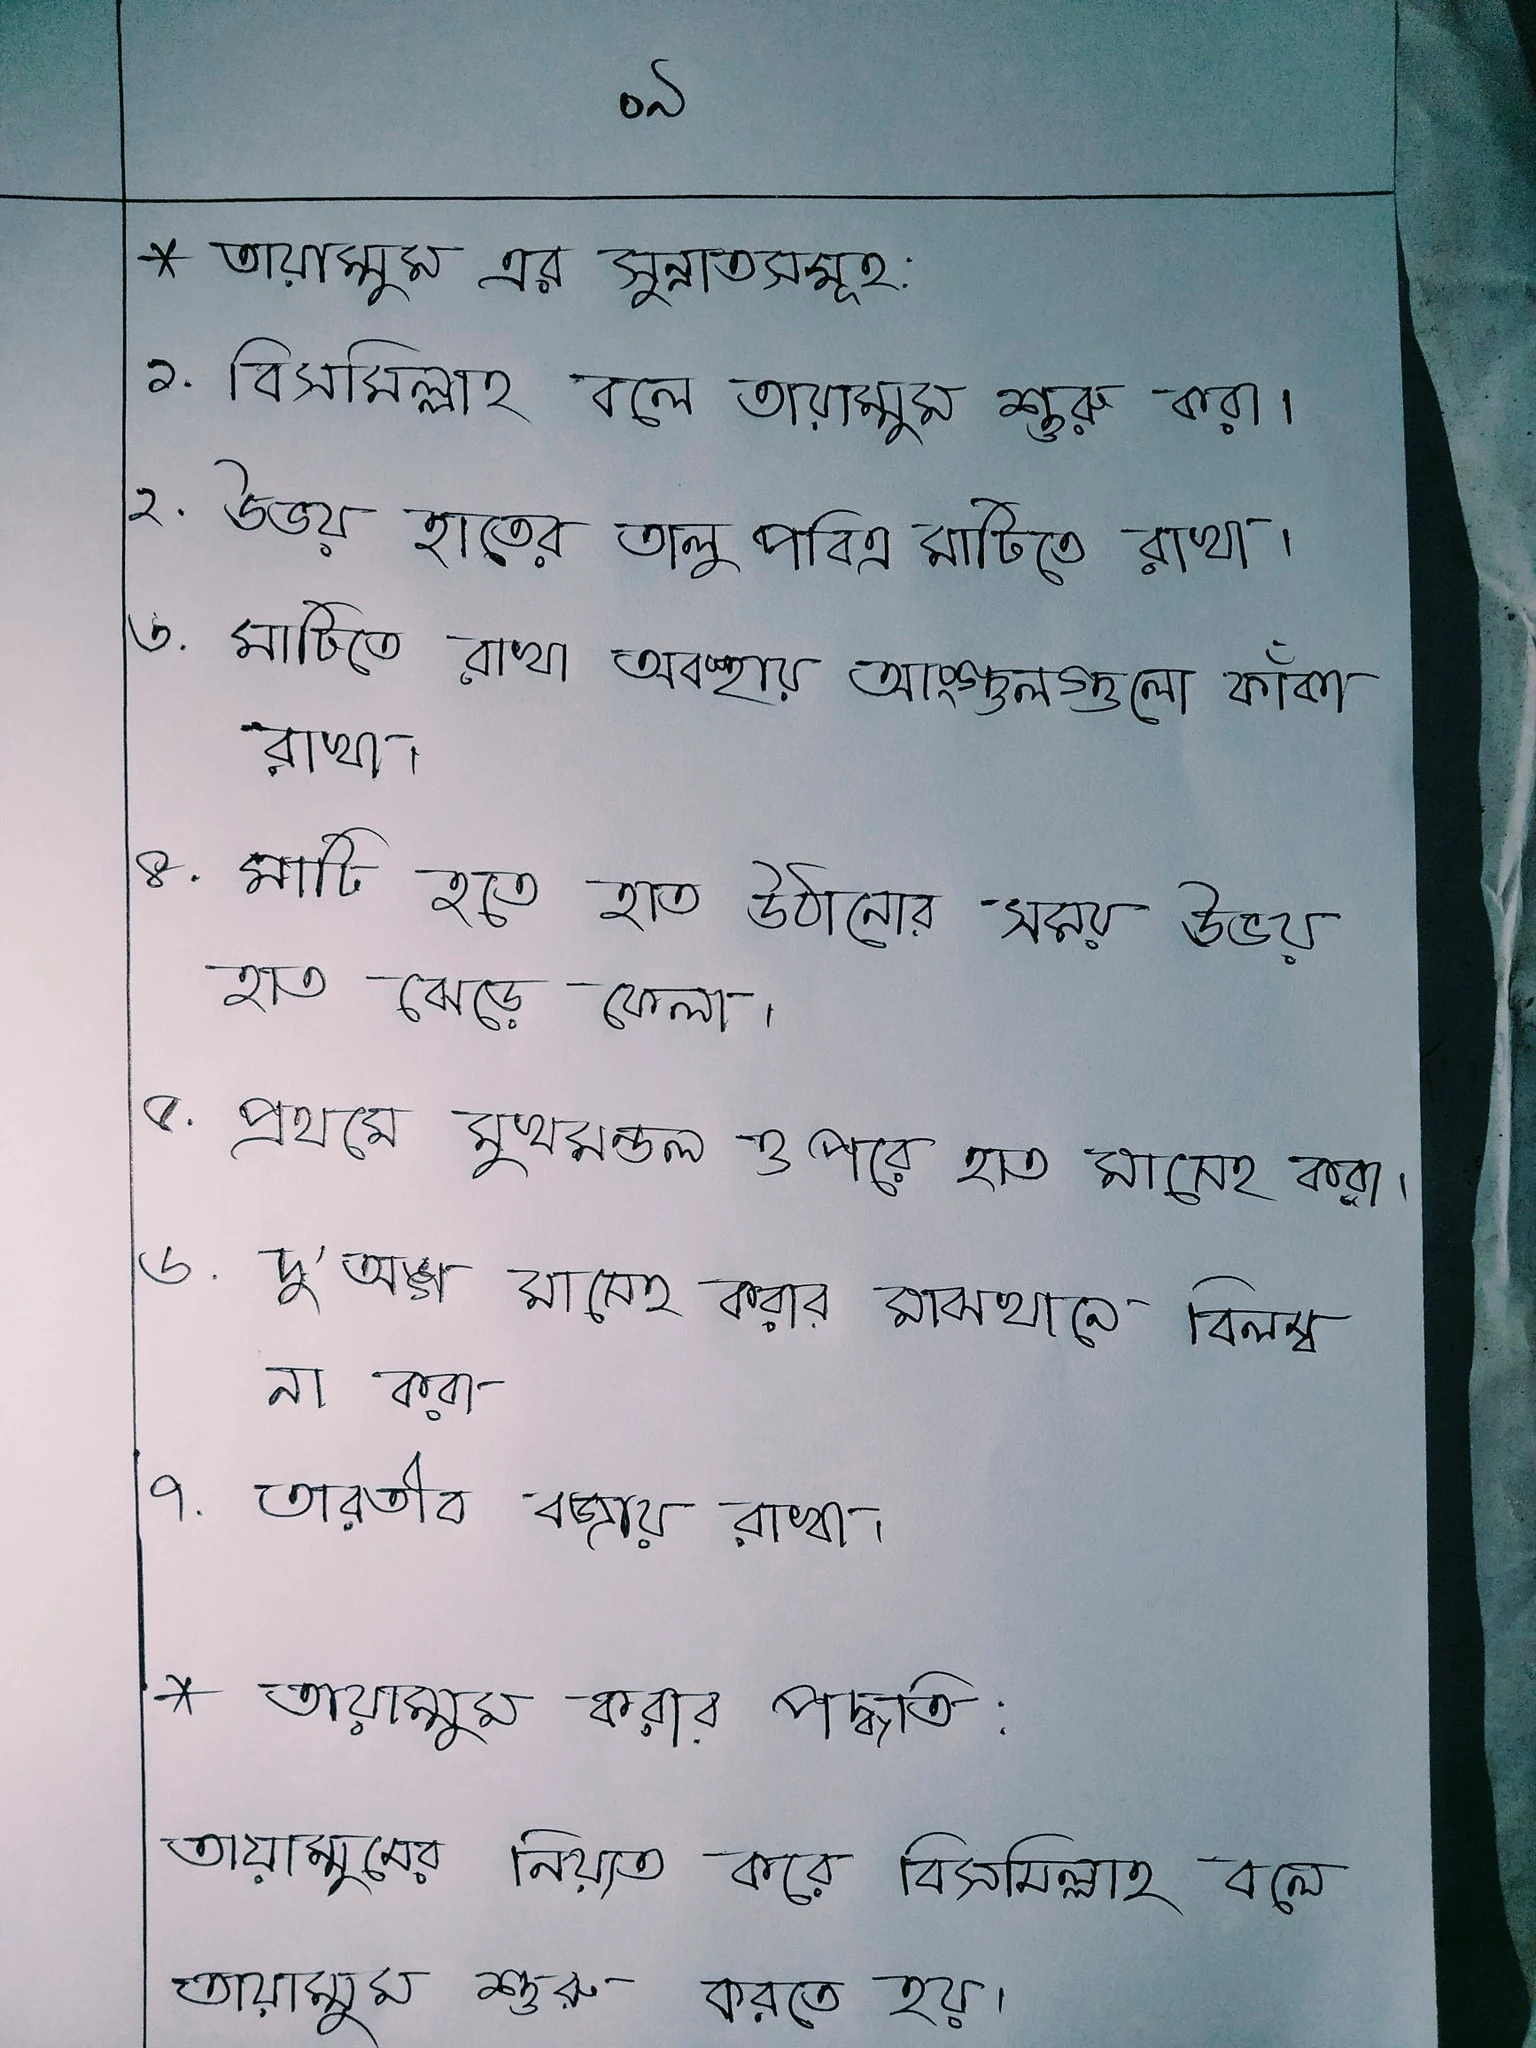 ০৯
* তায়াম্মুম এর সুন্নাতসমূহ:
১. বিসমিল্লাহ বলে তায়াম্মুম শুরু করা।
২. উভয় হাতের তালু পবিত্র মাটিতে রাখা।
৩. মাটিতে রাখা অবস্থায় আংগুলগুলো ফাঁকা
রাখা।
৪. মাটি হতে হাত উঠানোর সময় উভয়
হাত ঝেড়ে ফেলা।
৫. প্রথমে মুখমন্ডল ও পরে হাত মাসেহ করা।
৬. দু'অঙ্গ মাসেহ করার মাঝখানে বিলম্ব
না করা
৭. তারতীব বজায় রাখা।
* তায়াম্মুম করার পদ্ধতি:
তায়াম্মুমের নিয়্যত করে বিসমিল্লাহ বলে
তায়াম্মুম শুরু করতে হয়।